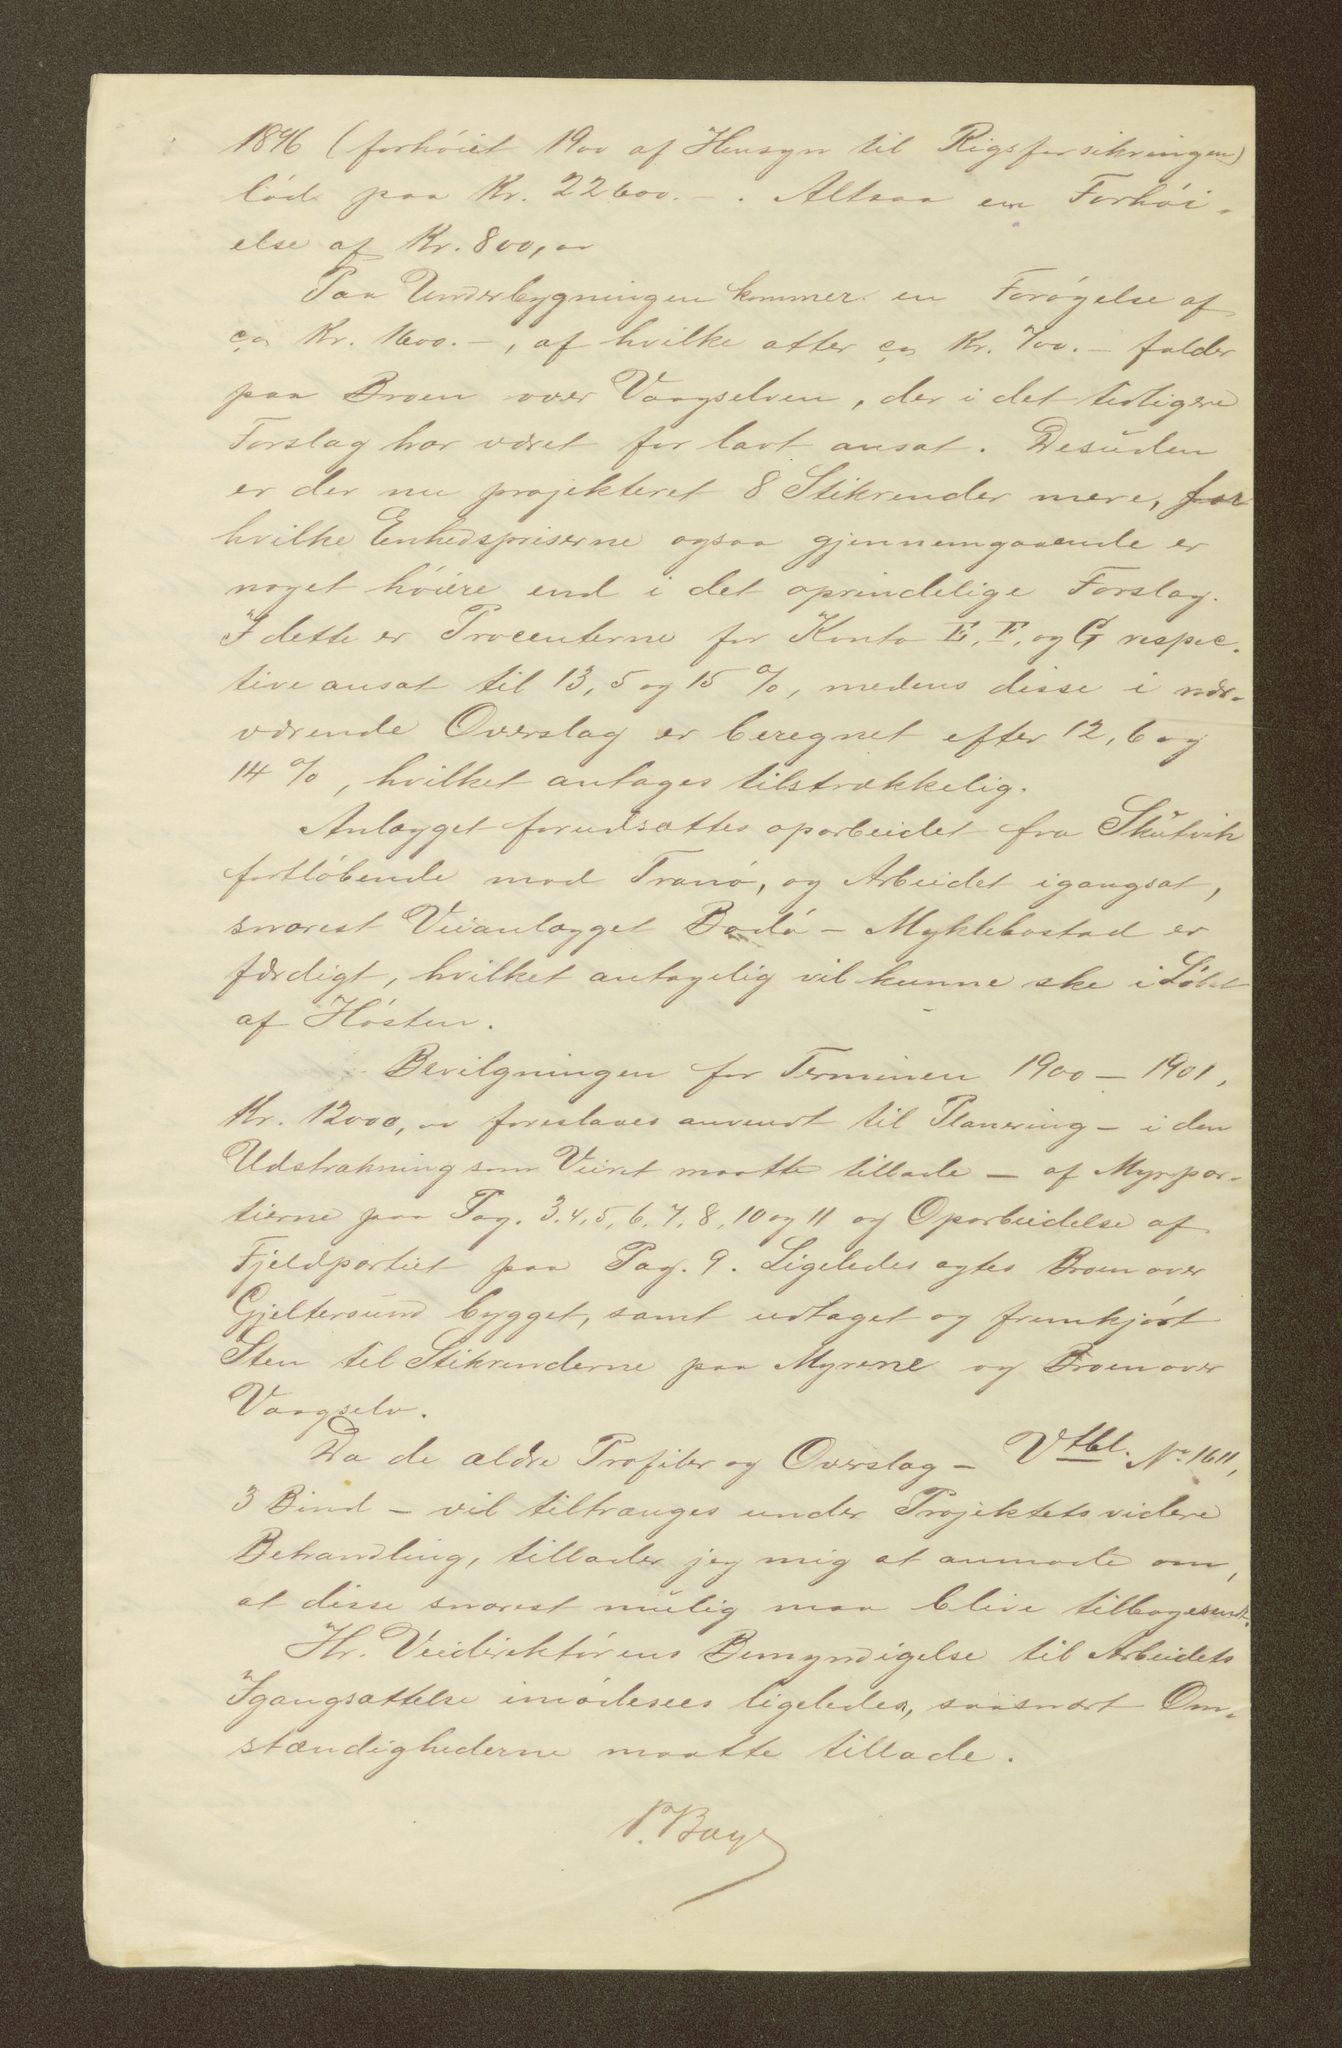 1896 (forhöiet 1900 af Hensyn til Rigsforsikringen)
löd paa Kr. 22600.-. Altsaa en Forhöi-
else af Kr. 800,00
Paa Underbygningen kommer en Forögelse af
ca Kr. 1600.-, af hvilke atter ca Kr. 700.- falder
paa Broen over Vaagselven, der i det tidligere
Forslag har været for lavt ansat. Desuden
er der nu projekteret 8 Stikrender mere, for
hvilke Enhedspriserne ogsaa gjennemgaaende er
noget höiere end i det oprindelige Forslag.
I dette er Procenterne for Konto E, F, og G respec-
tive ansat til 13, 5 og 15 %, medens disse i nær-
værende Overslag er beregnet efter 12, 6 og
14 %, hvilket antages tilstrækkelig.
Anlægget forudsættes oparbeidet fra Skutvik
fortlöbende mod Tranö, og Arbeidet igangsat,
snarest Veianlægget Bodö - Myklebostad er
færdigt, hvilket antagelig vil kunne ske i Löbet
af Hösten.
Bevilgningen for Terminen 1900 - 1901,
Kr. 12000,00 foreslaaes anvendt til Planering - i den
Udstrækning som Veiret maatte tillade - af Myrpar-
tierne paa Pag. 3, 4, 5, 6, 7, 8, 10 og 11 og Oparbeidelse af
Fjeldpartiet paa Pag. 9. Ligeledes agtes Broen over
Gjeltersund bygget, samt udtaget og fremkjört
Sten til Stikrenderne paa Myrene og Broen over
Vaagselv.
Da de ældre Profiler og Overslag - Vtbl. No 1611,
3 Bind - vil tiltrænges under Projektets videre
Behandling, tillader jeg mig at anmode om,
at disse snarest mulig maa blive tilbagesendt.
Hr. Veidirektörens Bemyndigelse til Arbeidets
Igangsættelse imödesees ligeledes, saasnart Om-
stændighederne maatte tillade.